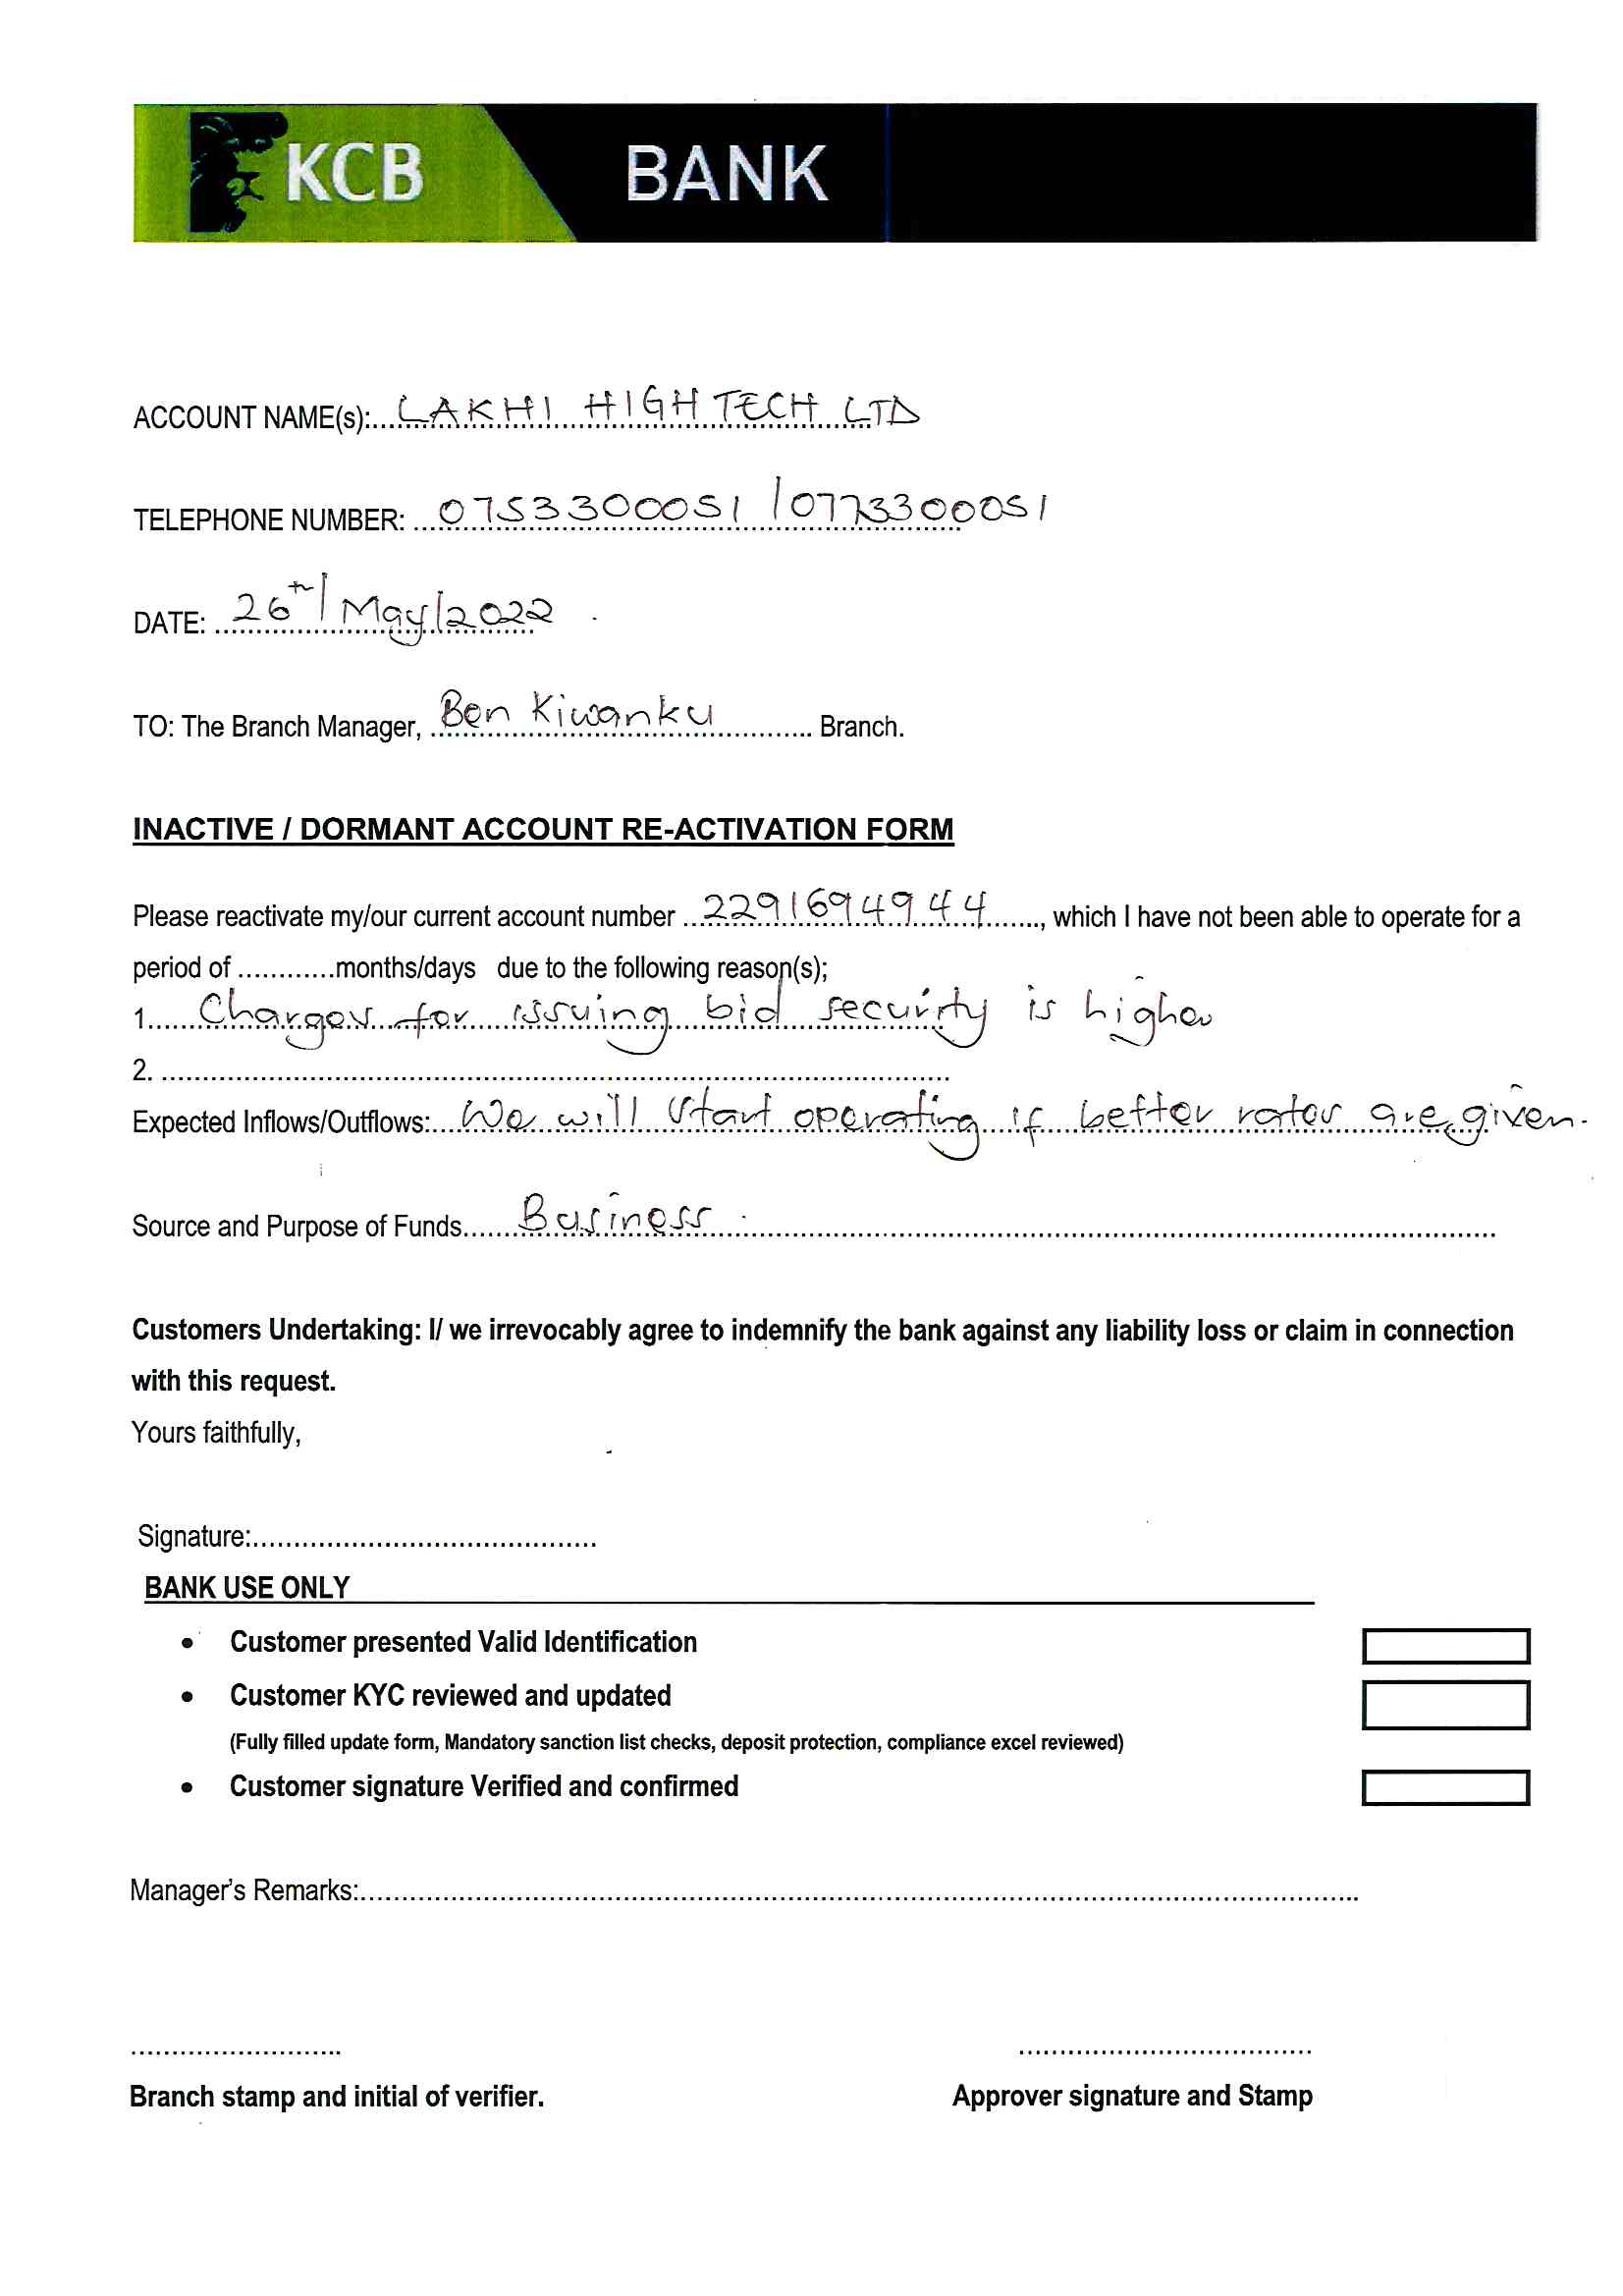 KCB BANK
ACCOUNT NAME(s):....LAKHI HIGH TECH LTD
TELEPHONE NUMBER: ...0753300051 / 0773300051
DATE: ...26th/May/2022
TO: The Branch Manager, ...Ben Kiwanku............ Branch.
INACTIVE / DORMANT ACCOUNT RE-ACTIVATION FORM
Please reactivate my/our current account number ...2291694944......., which I have not been able to operate for a
period of ............months/days due to the following reason(s);
1......Charges for issuing bid security is higher
2. ................................................................................................
Expected Inflows/Outflows:....We will start operating if better rates are given.
Source and Purpose of Funds......Business..........................................................................................
Customers Undertaking: I/ we irrevocably agree to indemnify the bank against any liability loss or claim in connection
with this request.
Yours faithfully,
Signature:..........................................
BANK USE ONLY
• Customer presented Valid Identification
• Customer KYC reviewed and updated
(Fully filled update form, Mandatory sanction list checks, deposit protection, compliance excel reviewed)
• Customer signature Verified and confirmed
Manager's Remarks:.........................................................................................................................
.......................... ....................................
Branch stamp and initial of verifier. Approver signature and Stamp